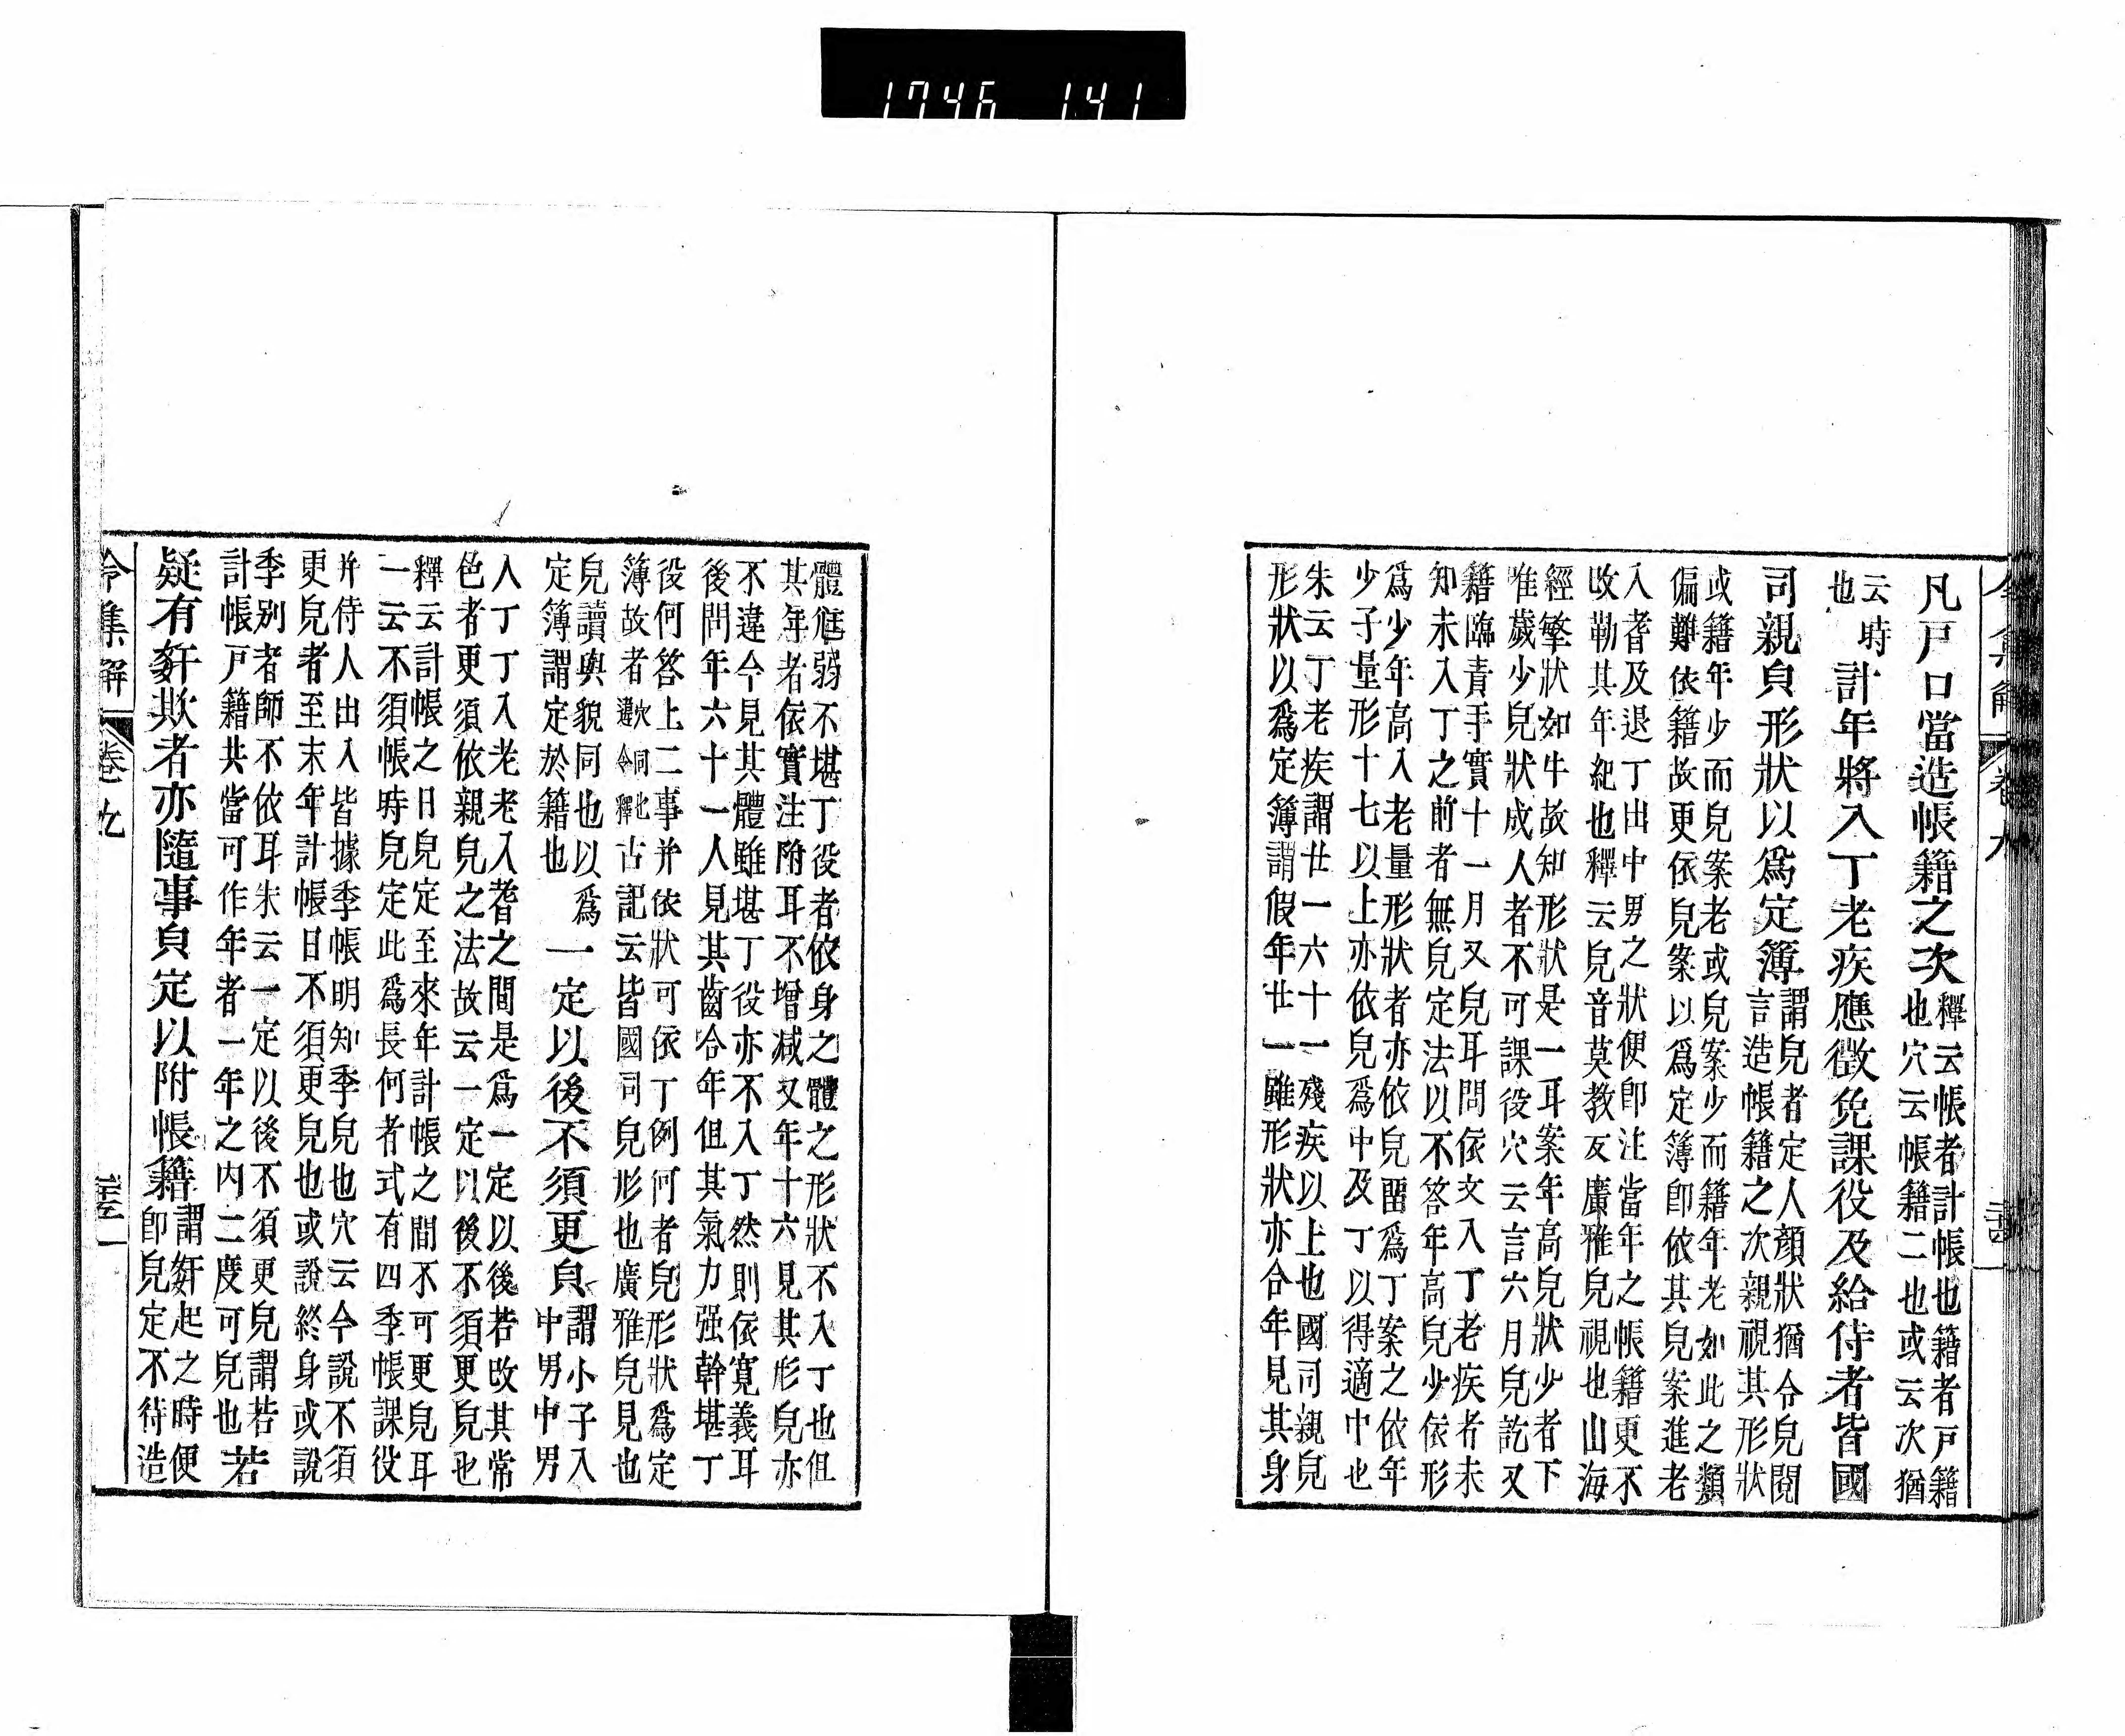 1746 141
凡戸口當造帳籍之次
釋云帳者計帳也籍者戸籍
也穴云帳籍二也或云次猶
云時
也
計年將入丁老疾應徴免課役及給侍者皆國
司親皃形狀以爲定簿
謂皃者定人顏狀猶令皃閲
言造帳籍之次親視其形狀
或籍年少而皃案老或皃案少而籍年老如此之類
偏難依籍故更依皃案以爲定簿即依其皃案進老
入耆及退丁出中男之狀便即注當年之帳籍更不
改勒其年紀也釋云皃音莫教反廣雅皃視也山海
經繋狀如牛故知形狀是一耳案年高皃狀少者下
唯歲少皃狀成人者不可課役穴云言六月皃訖又
籍臨青手實十一月又皃耳問依文入丁老疾者未
知未入丁之前者無皃定法以不答年高皃少依形
爲少年高入老量形狀者亦依皃畱爲丁案之依年
少子量形十七以上亦依皃爲中及丁以得適中也
朱云丁老疾謂廿一六十一殘疾以上也國司親皃
形狀以爲定簿謂假年廿一雖形狀亦合年見其身
體尫弱不堪丁役者依身之體之形狀不入丁也但
其年者依實注附耳不增减又年十六見其形皃亦
不違今見其體雖堪丁役亦不入丁然則依寛義耳
後問年六十一人見其齒合年但其氣力强幹堪丁
役何答上二事并依狀可依丁例何者皃形狀爲定
簿故者
穴同也
選令釋
古記云皆國司皃形也廣雅皃見也
皃讀與貌同也以爲
定簿謂定於籍也
一定以後不須更皃
謂小子入
中男中男
入丁丁入老老入耆之間是爲一定以後若改其常
色者更須依親皃之法故云一定以後不須更皃也
釋云計帳之日皃定至來年計帳之間不可更皃耳
一云不須帳時皃定此爲長何者式有四季帳課役
并侍人出入皆據季帳明知季皃也穴云今說不須
更皃者至末年計帳日不須更皃也或說終身或說
季別者師不依耳朱云一定以後不須更皃謂若
計帳戸籍共當可作年者一年之内二度可皃也
若
疑有姧欺者亦隨事皃定以附帳籍
謂姧起之時便
即皃定不待造
令集解 卷九